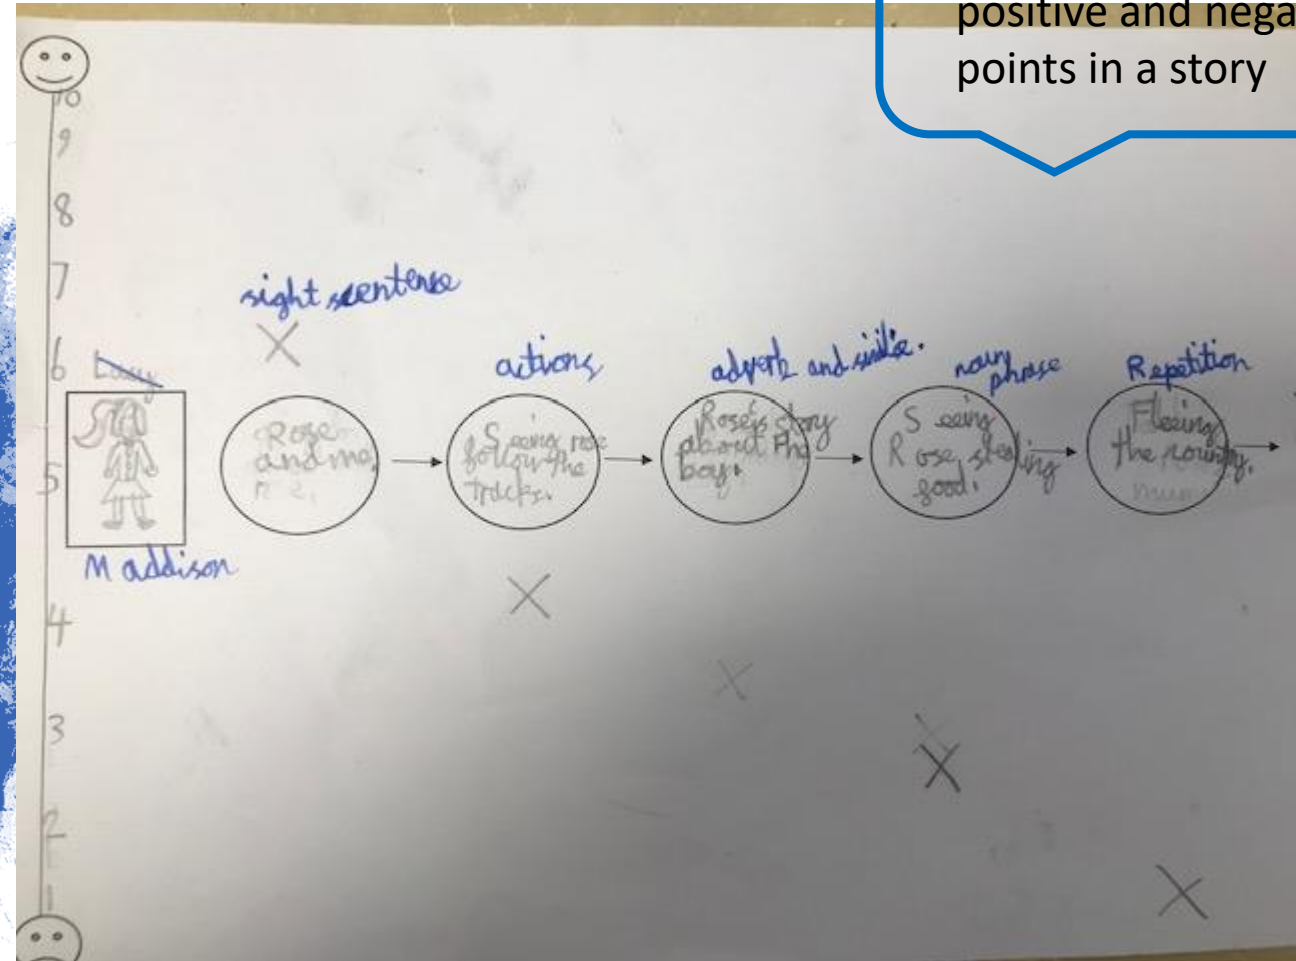 positive and nega
points in a story
10
9
8
7
6
5
4
3
2
1
Maddison
sight scentense
actions
adverb and similie.
noun
phrase
Repetition
Rose
and me.
Seeing rose
follow the
tracks.
Rose's story
about the
boy.
Seeing
Rose stealing
food.
Fleeing
the county.
mum